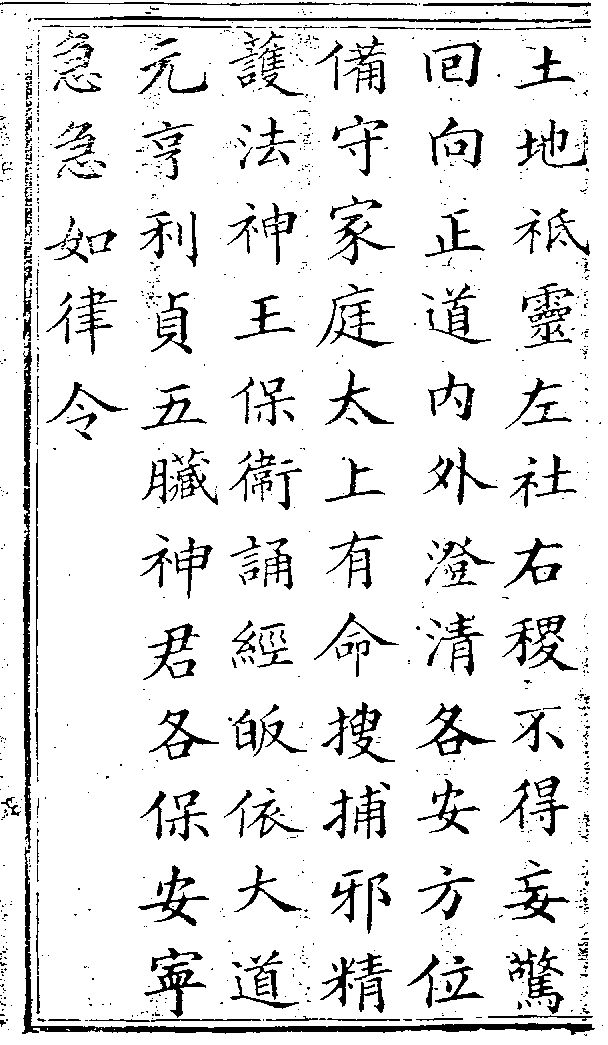 土地祇靈左社右稷不得妄驚
回向正道内外澄清各安方位
備守家庭太上有命搜捕邪精
護法神王保衛誦經皈依大道
元亨利貞五臟神君各保安寧
急急如律令